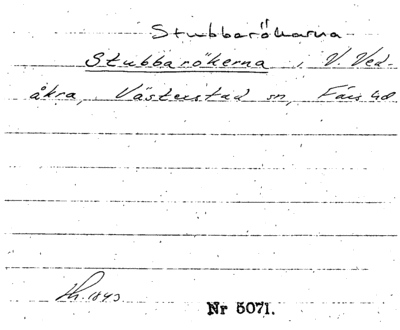 Stubbarökarna
Stubbarökerna, V. Ved-
åkra, Västerstad sn, Färs hd
Lh. 1843
Nr 5071.